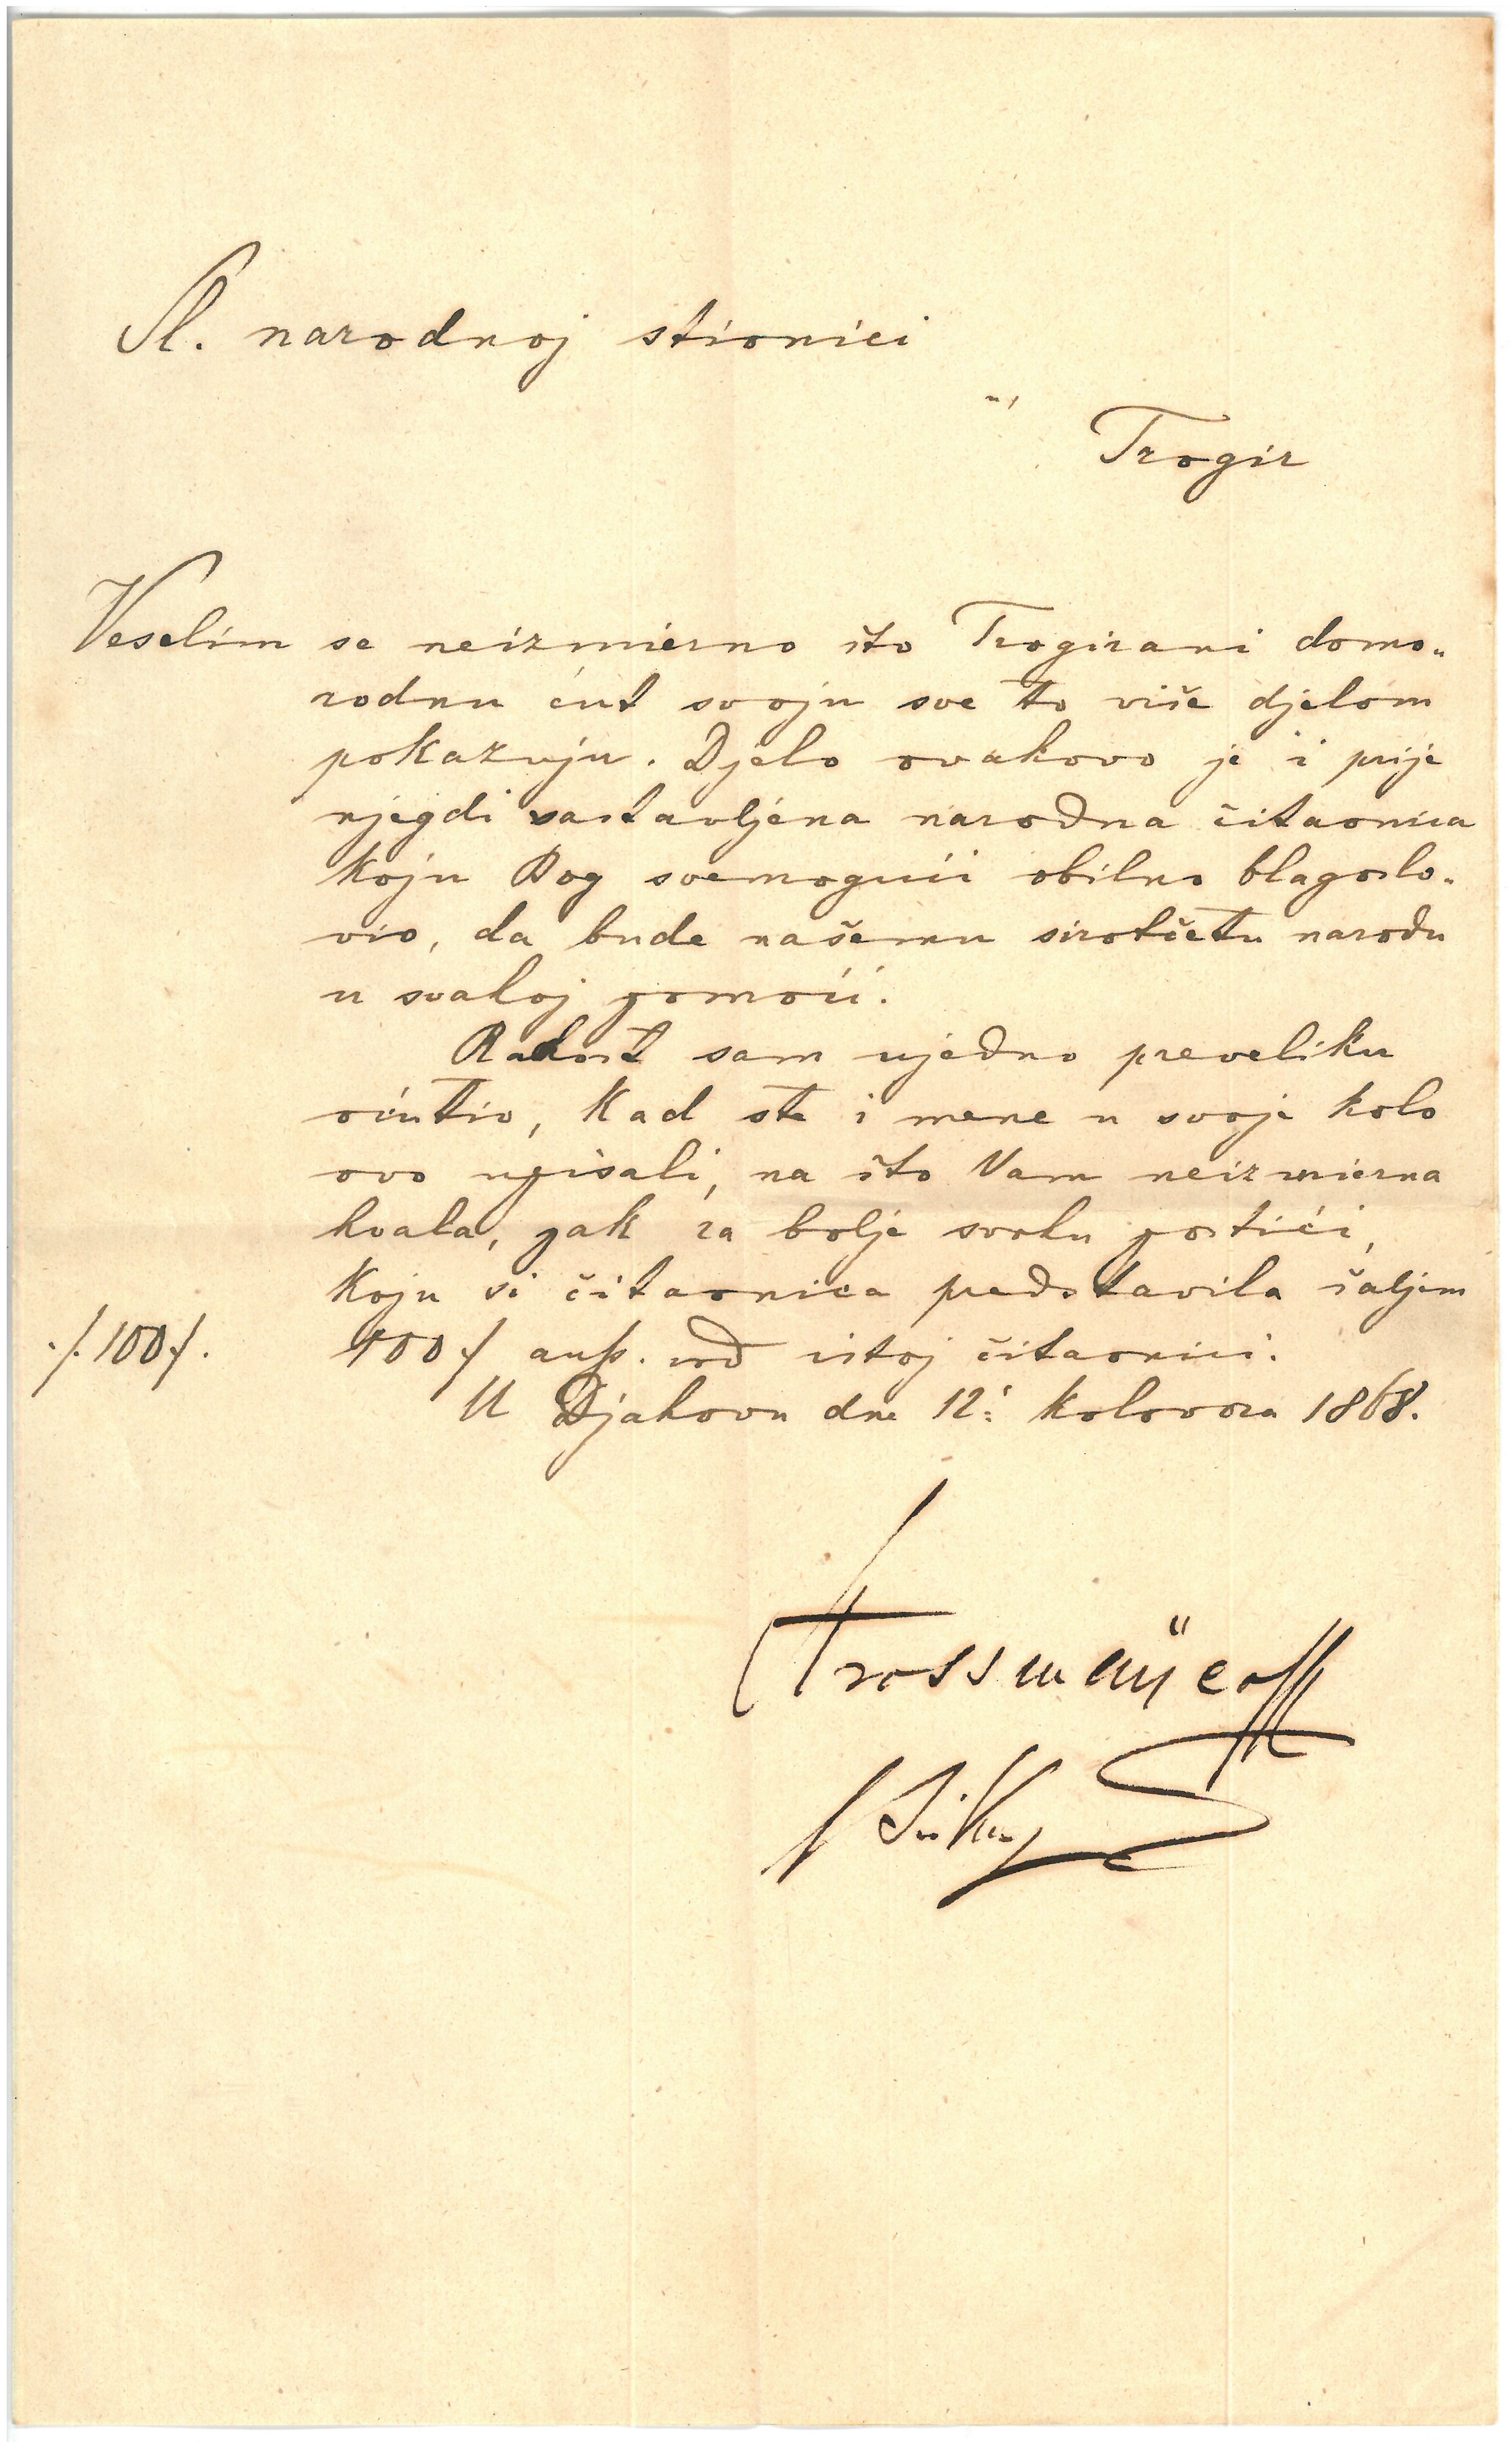 Sl. narodnoj štionici
u
Trogir
Veselim se neizmierno što Trogirani domo-
rodnu ćut svoju sve to više djelom
pokazuju. Djelo ovakovo je i prije
njegdi sastavljena narodna čitaonica
koju Bog svemogući obilno blagoslo-
vio, da bude našemu sirotčetu narodu
u svakoj pomoći.
Radost sam ujedno preveliku
oćutio, kad ste i mene u svoje kolo
ovo upisali, na što Vam neizmierna
hvala, pak za bolje svrhu postići,
koju si čitaonica predstavila šaljem
./. 100 f. 100 f aus. vrd istoj čitaonici.
U Djakovu dne 12. kolovoza 1868.
Strossmayer
biskup